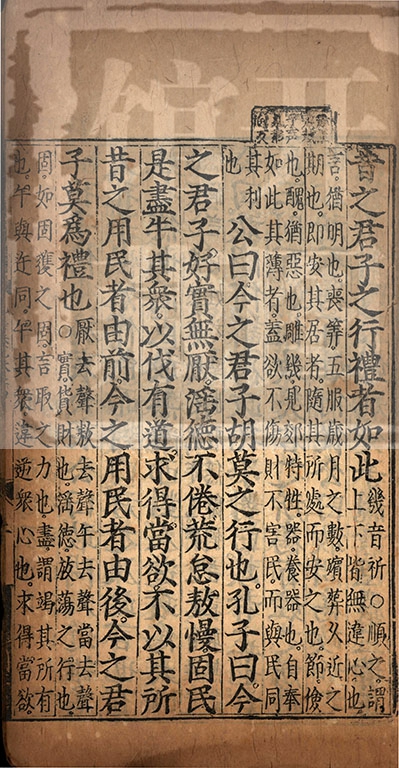 昔之君子之行禮者如此幾音祈○順之謂
上下皆無違心也
言猶明也喪筭五服歲月之數殯葬久近之
期也即安其居者隨其所處而安之也節儉
也醜猶惡也雕幾見郊特牲器養器也自奉
如此其薄者蓋欲不傷財不害民而與民同
其利
也
公曰今之君子胡莫之行也孔子曰今
之君子好實無厭滛德不倦荒怠敖慢固民
是盡午其衆以伐有道求得當欲不以其所
昔之用民者由前今之用民者由後今之君
子莫爲禮也厭去聲敖去聲午去聲當去聲
○實貨財也滛德放蕩之行也
固如固獲之固言取之力也盡謂竭其所有
也午與迕同午其衆違逆衆心也求得當欲